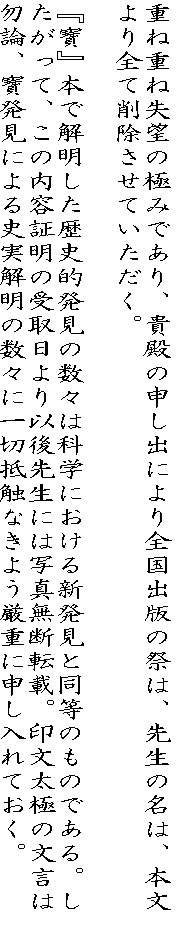 重ね重ね失望の極みであり、貴殿の申し出により全国出版の祭は、先生の名は、本文
より全て削除させていただく。
『寶』本で解明した歴史的発見の数々は科学における新発見と同等のものである。し
たがって、この内容証明の受取日より以後先生には写真無断転載。印文太極の文言は
勿論、寶発見による史実解明の数々に一切抵触なきよう厳重に申し入れておく。